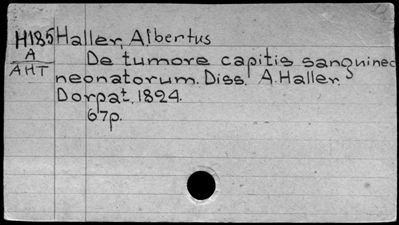 H185 Haller, Albertus
A De tumore capitis sanguineo
AHT neonatorum. Diss. A. Haller.
Dorpat, 1824.
67p.